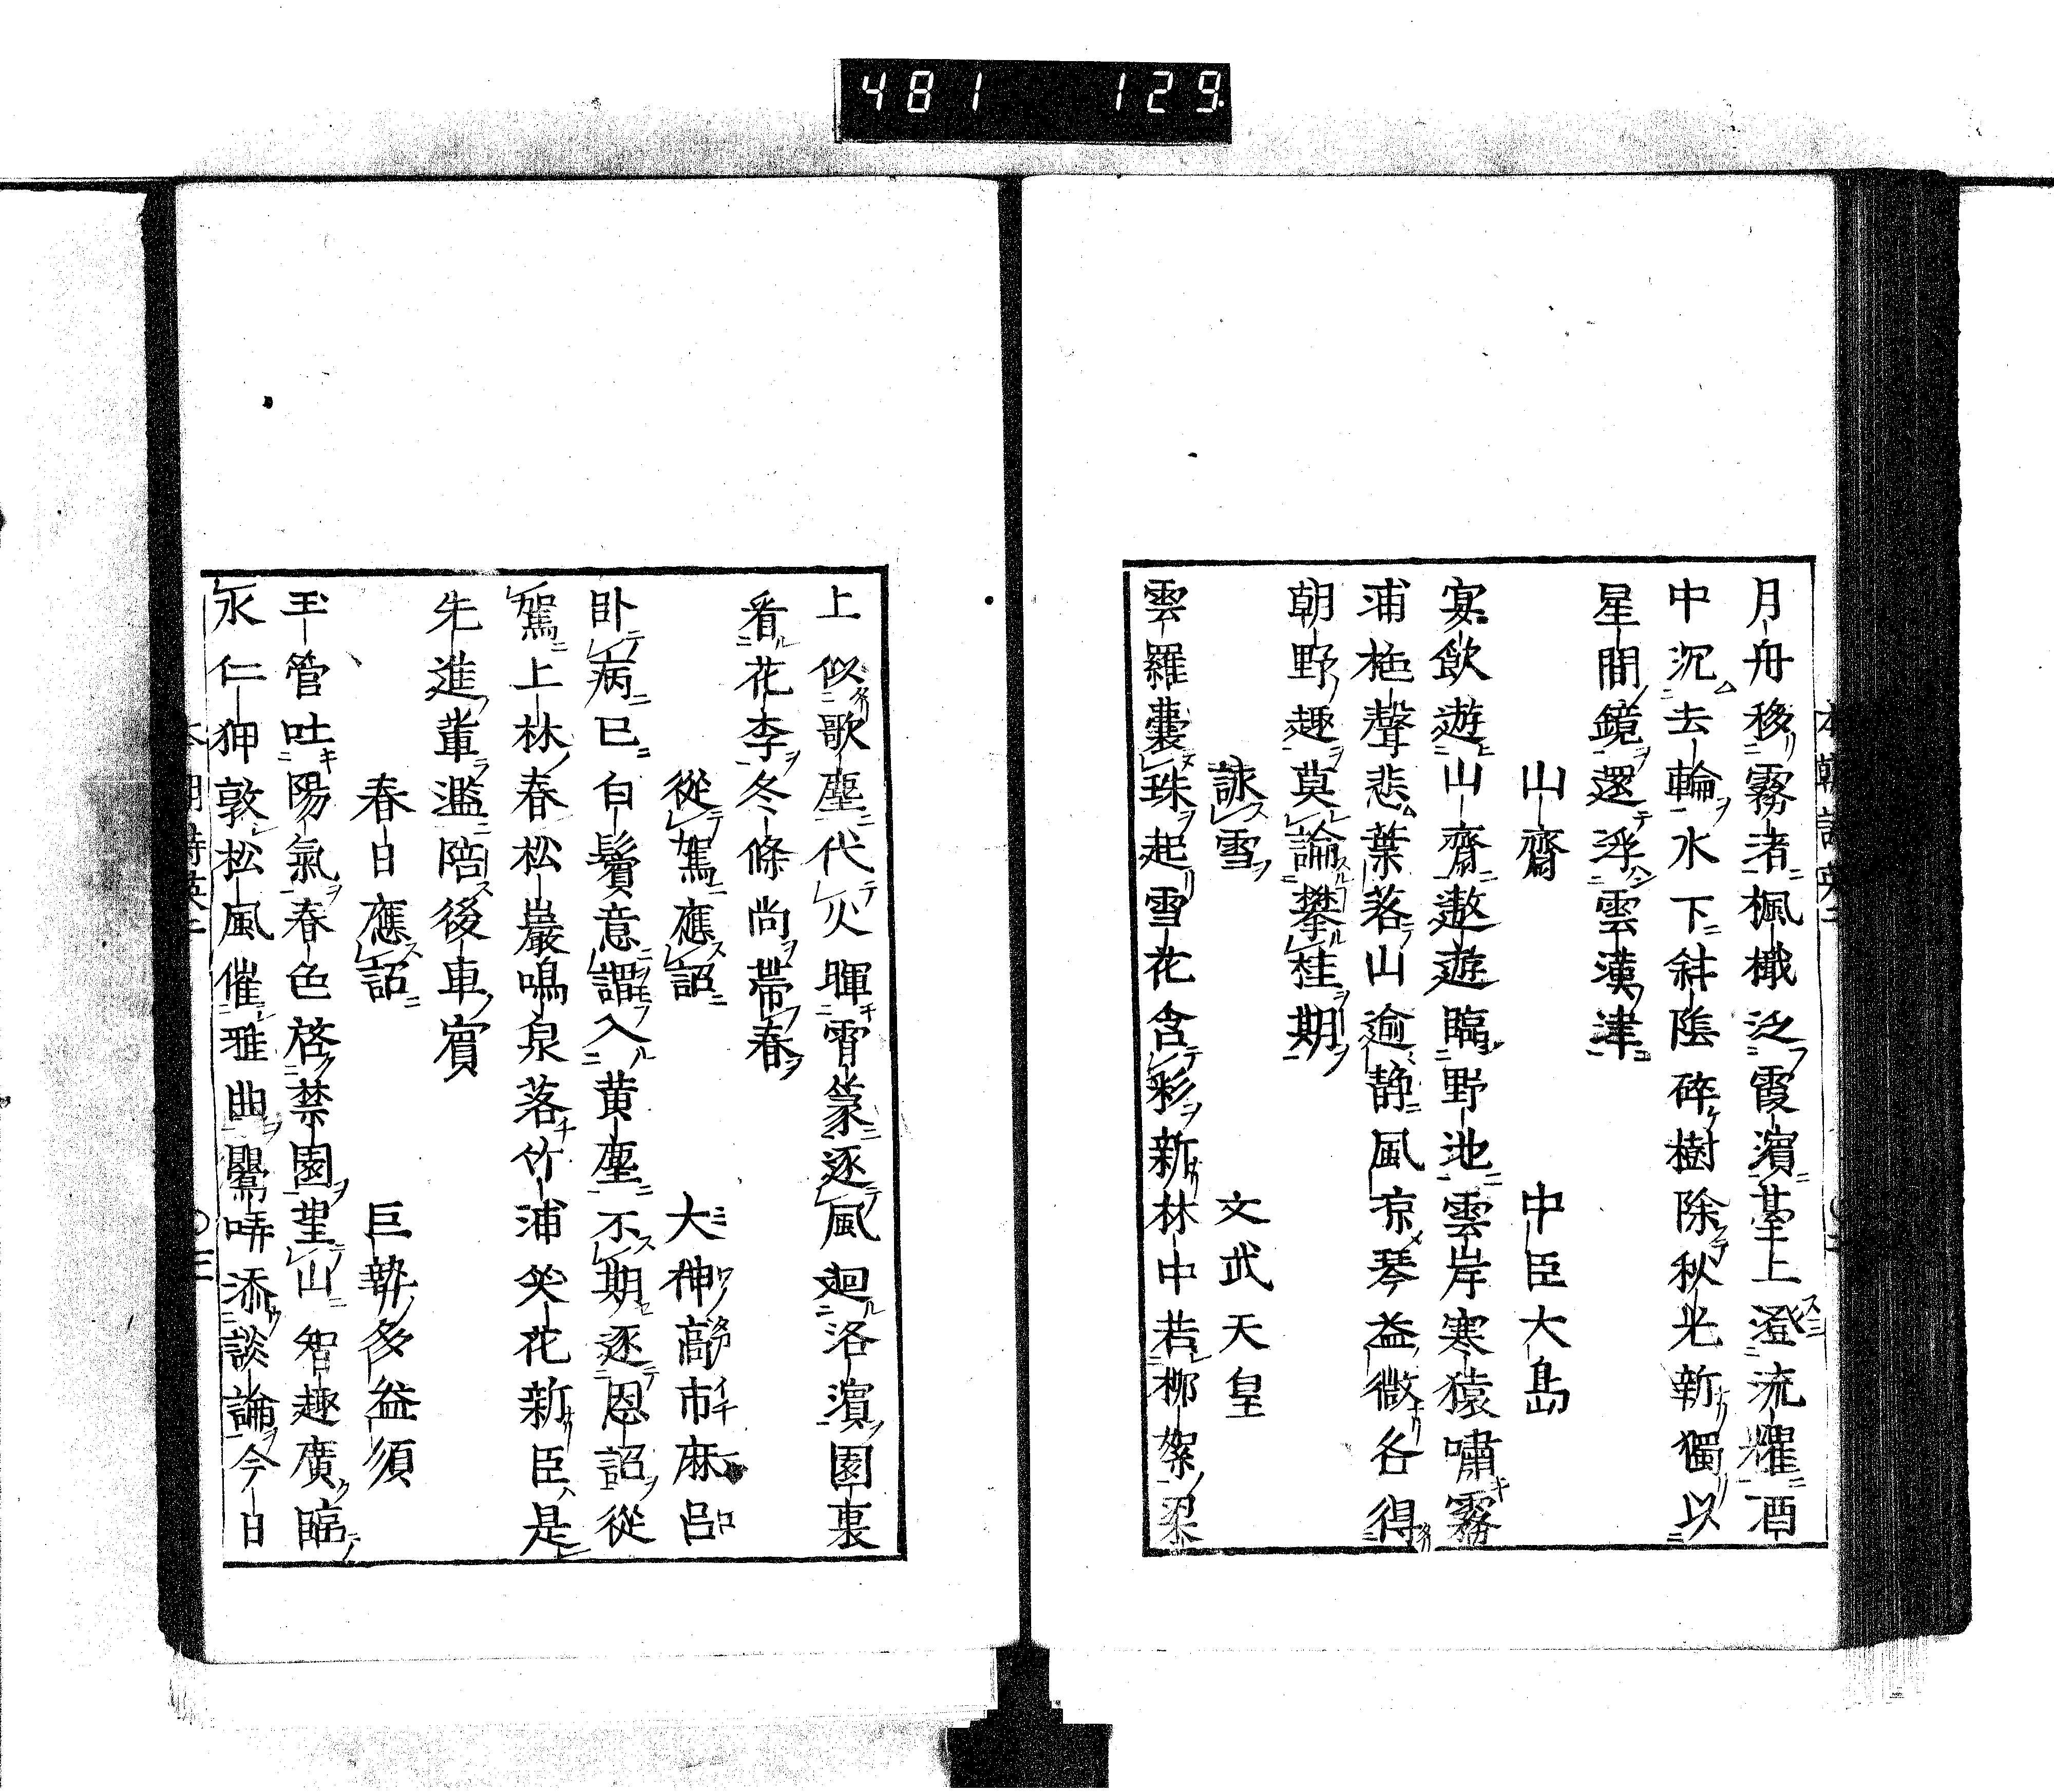 481 129
月舟移霧渚楓檝泛霞濱臺上澄流耀酒
中沉去輪水下斜陰碎樹除秋光新獨以
星間鏡還浮雲漢津
山齋 中臣大島
宴飲遊山齋遨遊臨野池雲岸寒猿嘯霧
浦柂聲悲葉落山逾静風凉琴益微各得
朝野趣莫論攀桂期
詠雪 文武天皇
雲羅囊珠起雪花含彩新林中若柳絮梁
上似歌塵代火暉霄篆逐風廻洛濱園裏
看花李冬條尚帶春
從駕應詔 大神高市麻呂
卧病已白鬢意謂入黄塵不期逐恩詔從
駕上林春松巖鳴泉落竹浦笑花新臣是
先進輩濫陪後車賓
春日應詔 巨勢多益須
玉管吐陽氣春色啓禁園望山智趣廣臨
水仁狎敦松風催雅曲鸎哢添談論今日